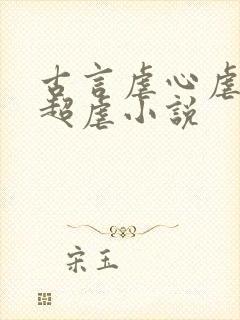 古言虐心虐
超虐小説
宋玉